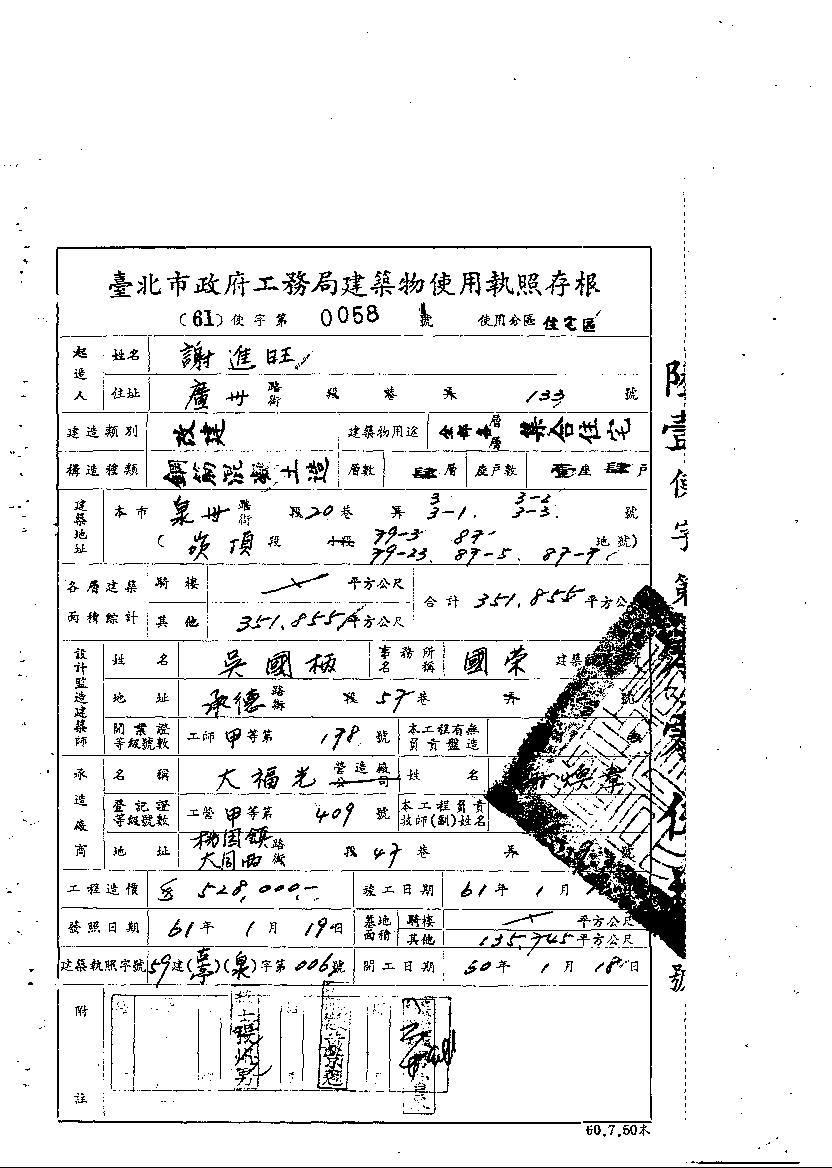 臺北市政府工務局建築物使用執照存根
(61)使字第 0058 號 使用分區 住宅區
起造人 姓名 謝進旺
住址 廣州 路街 段 巷 弄 133 號
建造類別 改建 建築物用途 集合住宅
構造種類 鋼筋混凝土造 層數 肆層 座戶數 壹座肆戶
建築地址 本市 泉州 路街 段20巷 弄 3 3-1. 3-2 3-3. 號
(崁頂 段 小段 79-3 87 79-23. 87-5. 87-7 地號)
各層建築面積綜計 騎樓 平方公尺 合計 351.855 平方公
其他 351.855 平方公尺
設計監造建築師 姓名 吳國柄 事務所名稱 國榮 建築
地址 承德 路街 段 57 巷 弄 號
開業證等級號數 工師甲等第 178 號 本工程有無負責監造
承造廠商 名稱 大福光 營造廠公司 姓名 煥章
登記證等級號數 工營甲等第 409 號 本工程負責技師(副)姓名
地址 桃園鎮大同西 路街 段 47 巷 弄 號
工程造價 528,000.- 竣工日期 61年 1月
發照日期 61年 1月 19日 基地面積 騎樓 平方公尺
其他 135.745平方公尺
建築執照字號 59建( )(泉)字第006號 開工日期 60年 1月 18日
附註
60.7.50本
陸壹使字第
號